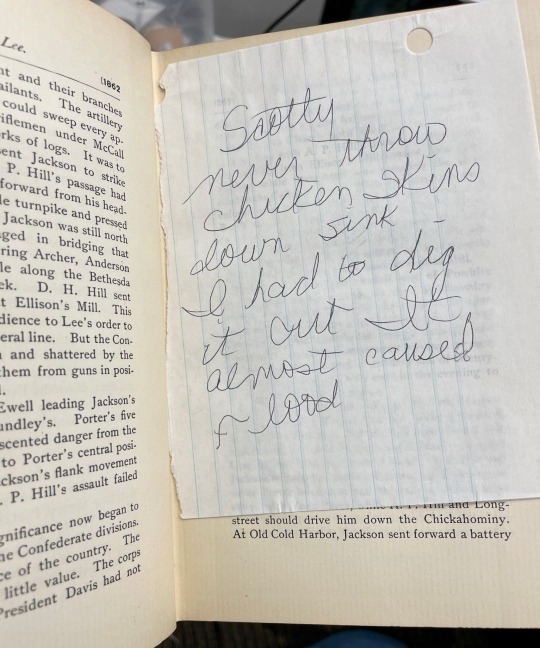 Lee.
[1862
nt and their branches
ailants. The artillery
could sweep every ap-
iflemen under McCall
rks of logs. It was to
ent Jackson to strike
P. Hill's passage had
forward from his head-
le turnpike and pressed
Jackson was still north
ged in bridging that
ring Archer, Anderson
le along the Bethesda
ek. D. H. Hill sent
t Ellison's Mill. This
dience to Lee's order to
eral line. But the Con-
and shattered by the
them from guns in posi-
Ewell leading Jackson's
undley's. Porter's five
scented danger from the
to Porter's central posi-
ckson's flank movement
. P. Hill's assault failed
gnificance now began to
he Confederate divisions.
ce of the country. The
little value. The corps
President Davis had not
Scotty
never throw
chicken skins
down sink
I had to dig
it out It
almost caused
Flood
Hill and Long-
street should drive him down the Chickahominy.
At Old Cold Harbor, Jackson sent forward a battery